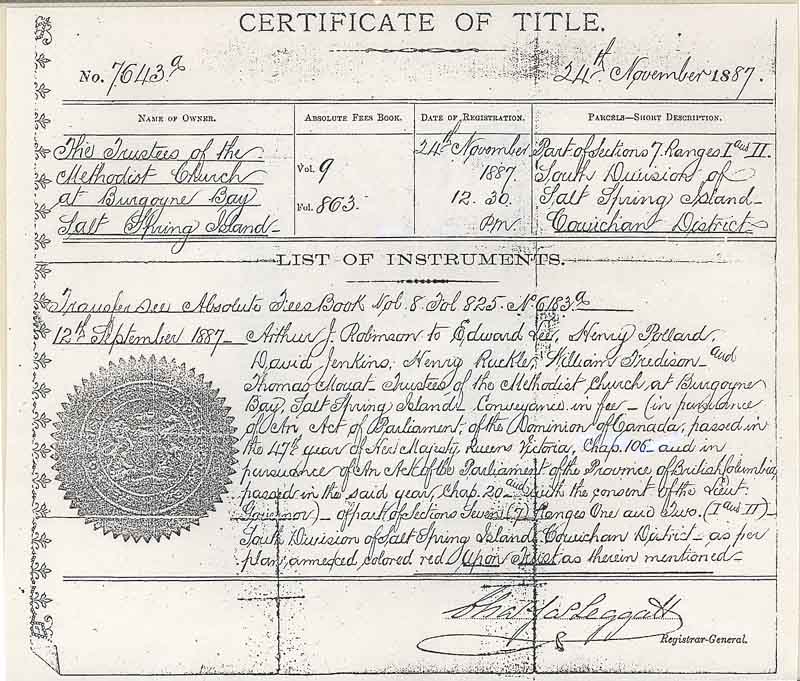 CERTIFICATE OF TITLE.
No. 7643a
24th November 1887.
NAME OF OWNER.
The Trustees of the
Methodist Church
at Burgoyne Bay
Salt Spring Island
ABSOLUTE FEES BOOK.
Vol. 9
Fol. 863.
DATE OF REGISTRATION.
24th November
1887.
12. 30.
P.m.
PARCELS—SHORT DESCRIPTION.
Part of Sections 7. Ranges I and II.
South Division of
Salt Spring Island
Cowichan District
LIST OF INSTRUMENTS.
Transfer See Absolute Fees Book Vol. 8 Fol 825. No 6183a
12th September 1887 Arthur J. Robinson to Edward Lee, Henry Pollard,
David Jenkins, Henry Ruckle, William and
Thomas Mouat Trustees of the Methodist Church, at Burgoyne
Bay, Salt Spring Island Conveyance in fee (in pursuance
of An Act of Parliament, of the Dominion of Canada, passed in
the 47th year of Her Majesty, Queens Victoria, Chap. 106 and in
pursuance of An Act of the Parliament of the Province of British Columbia,
passed in the said year, Chap. 20 and with the consent of the Lieut:
Governor) of part of Sections Seven (7) Ranges One and Two. (I and II)
South Division of Salt Spring Island Cowichan District as per
plan annexed colored red Upon Trust as therein mentioned
Leggatt
Registrar-General.